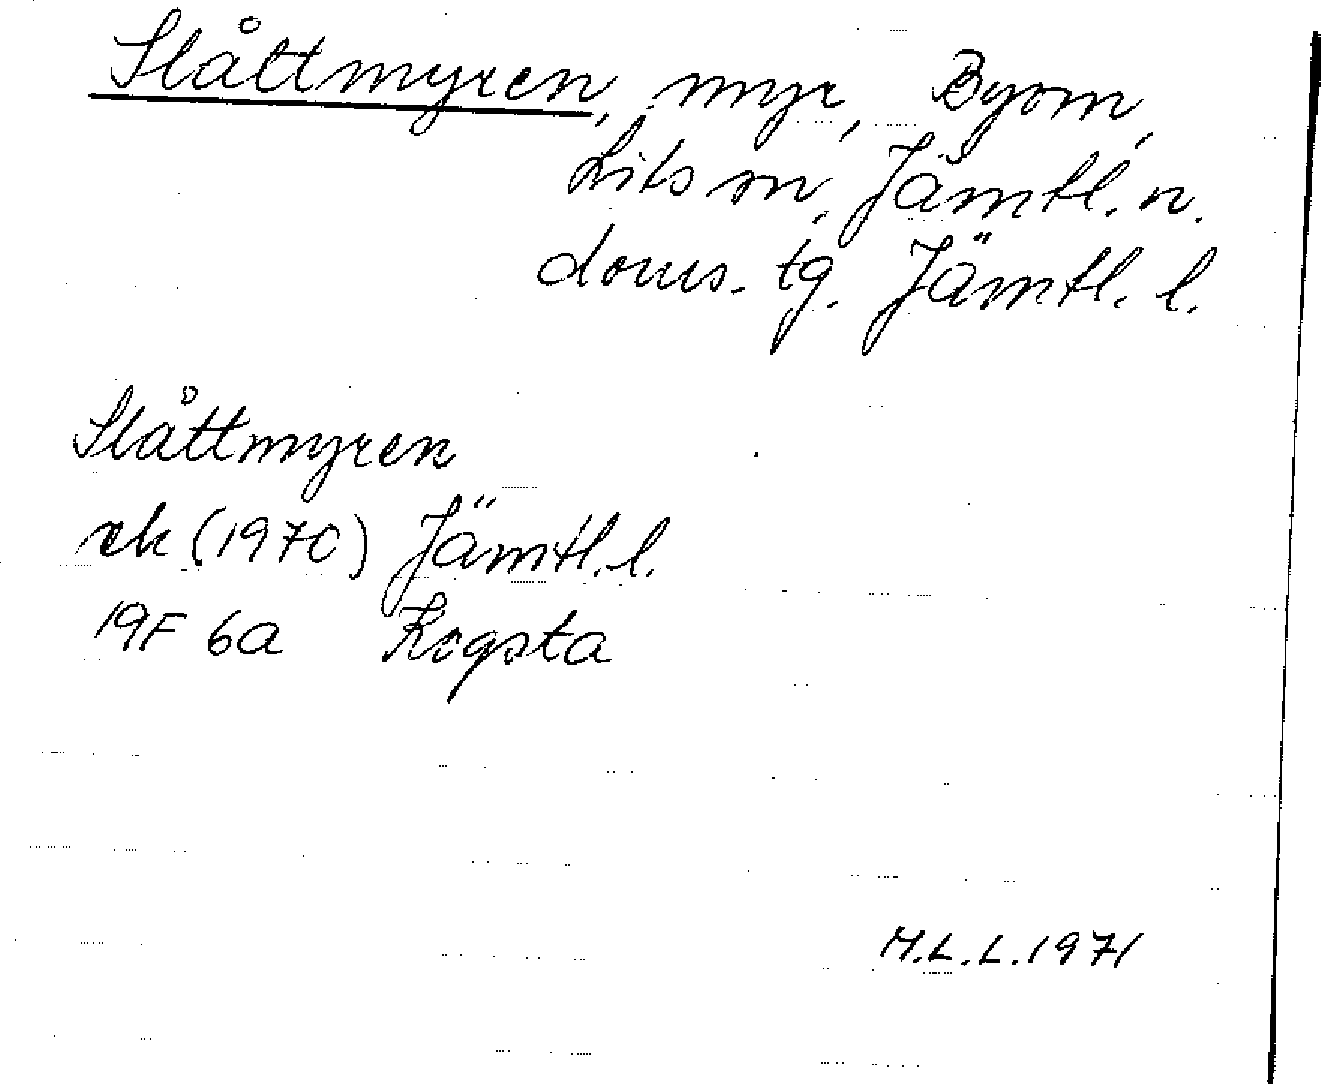 Slåttmyren, myr, Byom,
Lits sn, Jämtl. n.
doms. tg. Jämtl. l.
Slåttmyren
ek (1970) Jämtl. l.
19F 6a Kogsta
M.L.L. 1971